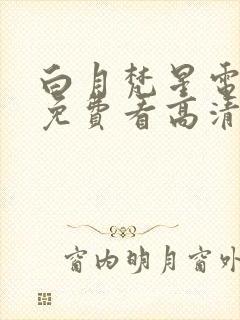 白月梵星电
免費看高清
窗内明月窗外